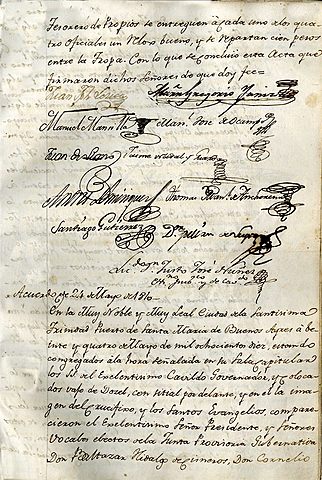 Tesorero de Propios se entreguen à cada uno de los qua
tro Oficiales un Relox bueno, y se repartan cien pesos
entre la Tropa. Con lo que se concluió esta Acta que
firmaron dichos Señores de que doy fee=
Juan José
Martin Gregorio Yaniz
Manuel Mansilla Man. José de Ocampo
Juan de Llano Jaime Nadal y Guarda
Andres Dominguez Thomas Man. de Anchorena
Santiago Gutierrez D.r Julián de Leyva
Lic.do D. Justo José Nuñez
Ess.no pub.co y de Cavdo
Acuerdo de 24 de Mayo de 1810
En la Muy Noble y Muy Leal Ciudad de la Santisima
Trinidad Puerto de Santa Maria de Buenos Ayres à be
inte y quatro de Mayo de mil ochocientos diez, estando
congregados à la hora señalada en su Sala Capitular
los S.S. del Excelentisimo Cavildo Governador, y coloca
dos vajo de Docel, con sitial por delante, y en el la ima
gen del crucifixo, y los Santos Evangelios, compare
cieron el Excelentisimo Señor Presidente, y Señores
Vocales electos de la Junta Provisoria Gubernativa
Don Baltazar Hidalgo de Cisneros, Don Cornelio